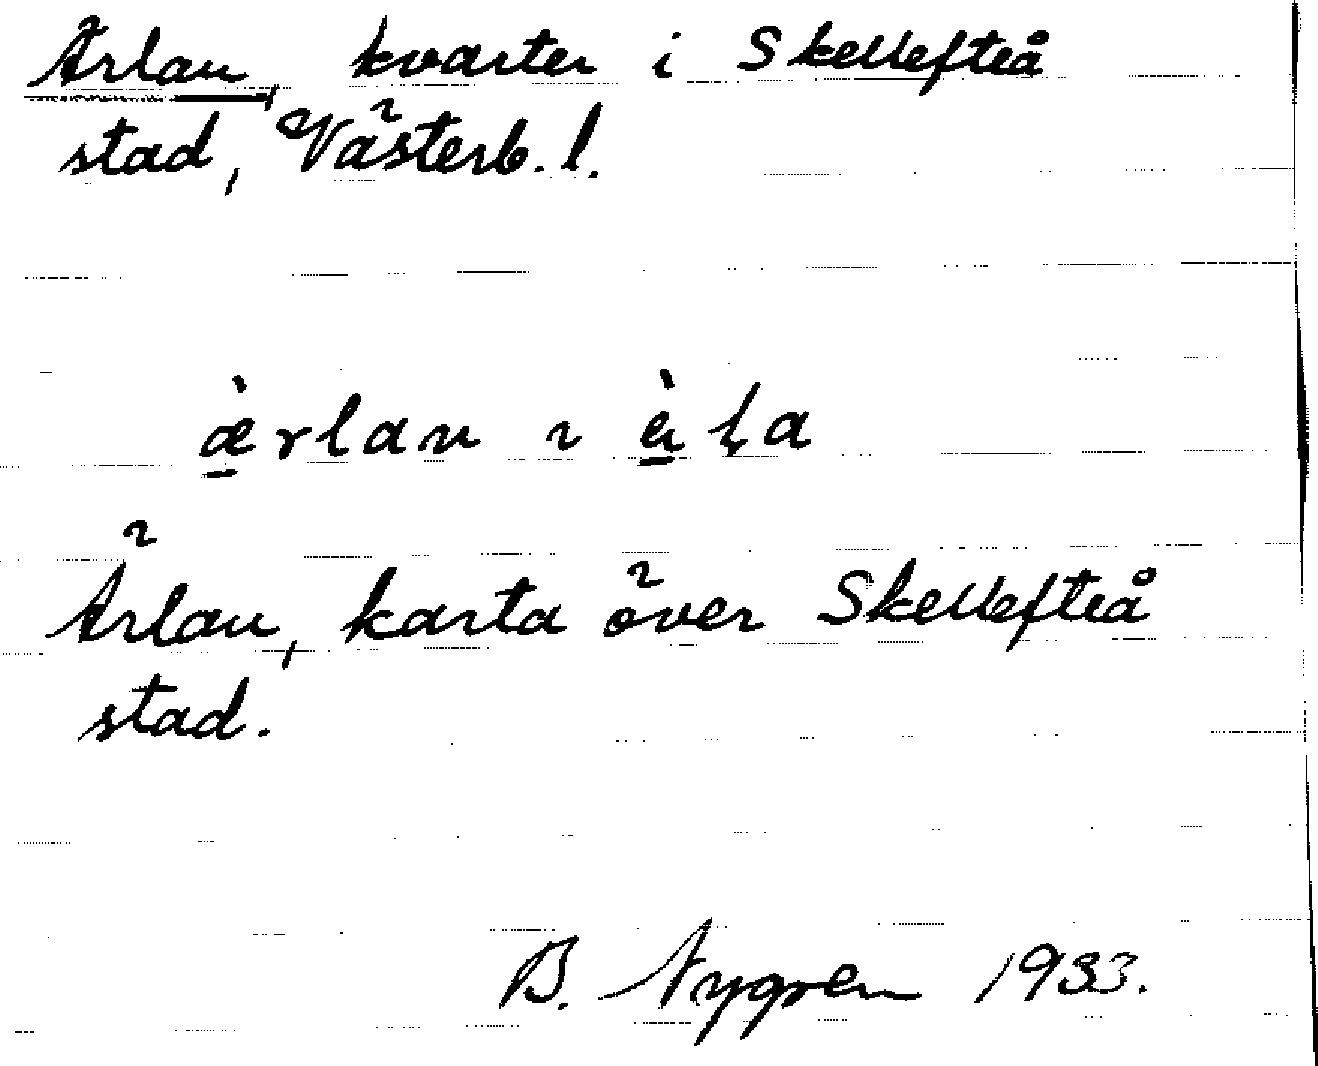 Ärlan, kvarter i Skellefteå
stad, Västerb. l.
æ̀rlan ı
Ärlan, karta över Skellefteå
stad.
B. Nygren 1933.